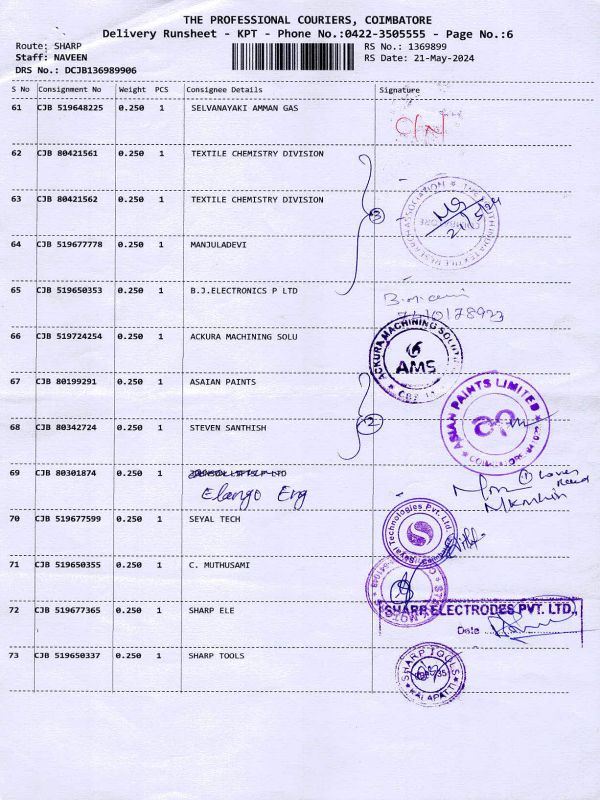 THE PROFESSIONAL COURIERS, COIMBATORE
Delivery Runsheet - KPT - Phone No.:0422-3505555 - Page No.:6
Route: SHARP
RS No.: 1369899
Staff: NAVEEN
RS Date: 21-May-2024
DRS No.: DCJB136989906
S No Consignment No Weight PCS Consignee Details Signature
61 CJB 519648225 0.250 1 SELVANAYAKI AMMAN GAS
62 CJB 80421561 0.250 1 TEXTILE CHEMISTRY DIVISION
63 CJB 80421562 0.250 1 TEXTILE CHEMISTRY DIVISION
3
21/5/24
64 CJB 519677778 0.250 1 MANJULADEVI
65 CJB 519650353 0.250 1 B.J.ELECTRONICS P LTD
66 CJB 519724254 0.250 1 ACKURA MACHINING SOLU
ACKURA MACHINING
AMS
67 CJB 80199291 0.250 1 ASAIAN PAINTS
ASIAN PAINTS LIMITED
68 CJB 80342724 0.250 1 STEVEN SANTHISH
2
69 CJB 80301874 0.250 1
Elango Eng
70 CJB 519677599 0.250 1 SEYAL TECH
Seyal Technologies Pvt. Ltd.
71 CJB 519650355 0.250 1 C. MUTHUSAMI
72 CJB 519677365 0.250 1 SHARP ELE
SHARP ELECTRODES PVT. LTD.
Date
73 CJB 519650337 0.250 1 SHARP TOOLS
SHARP TOOLS
KALAPATTI